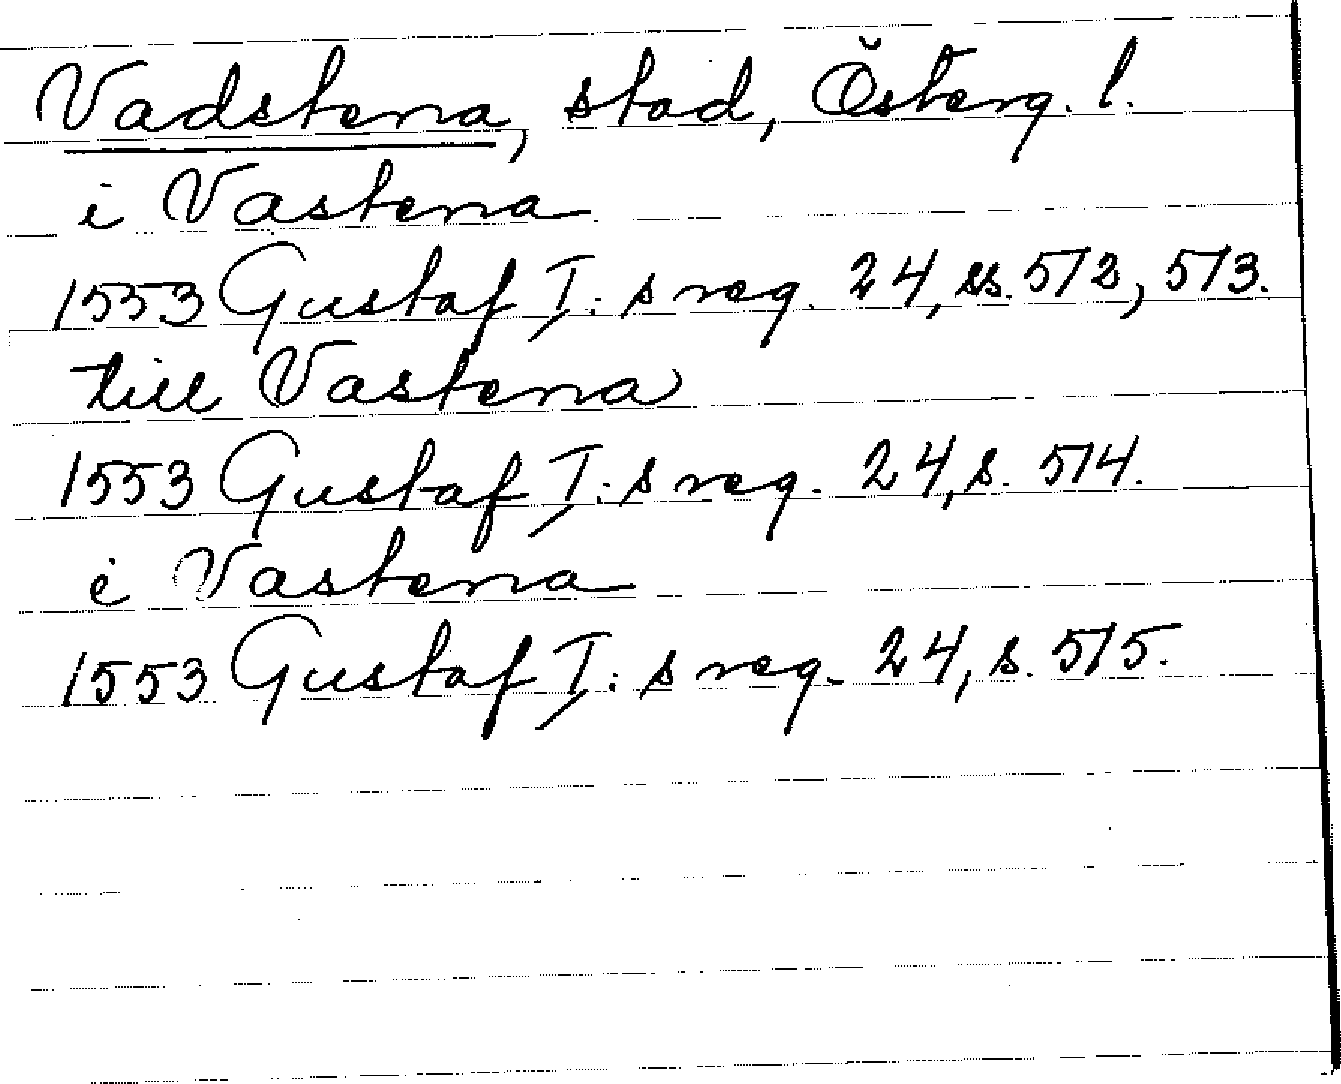 Vadstena, stad, Österg. l.
i Vastena
1553 Gustaf I:s reg. 24, ss. 512, 513.
till Vastena
1553 Gustaf I:s reg. 24, s. 514.
i Vastena
1553 Gustaf I:s reg. 24, s. 515.